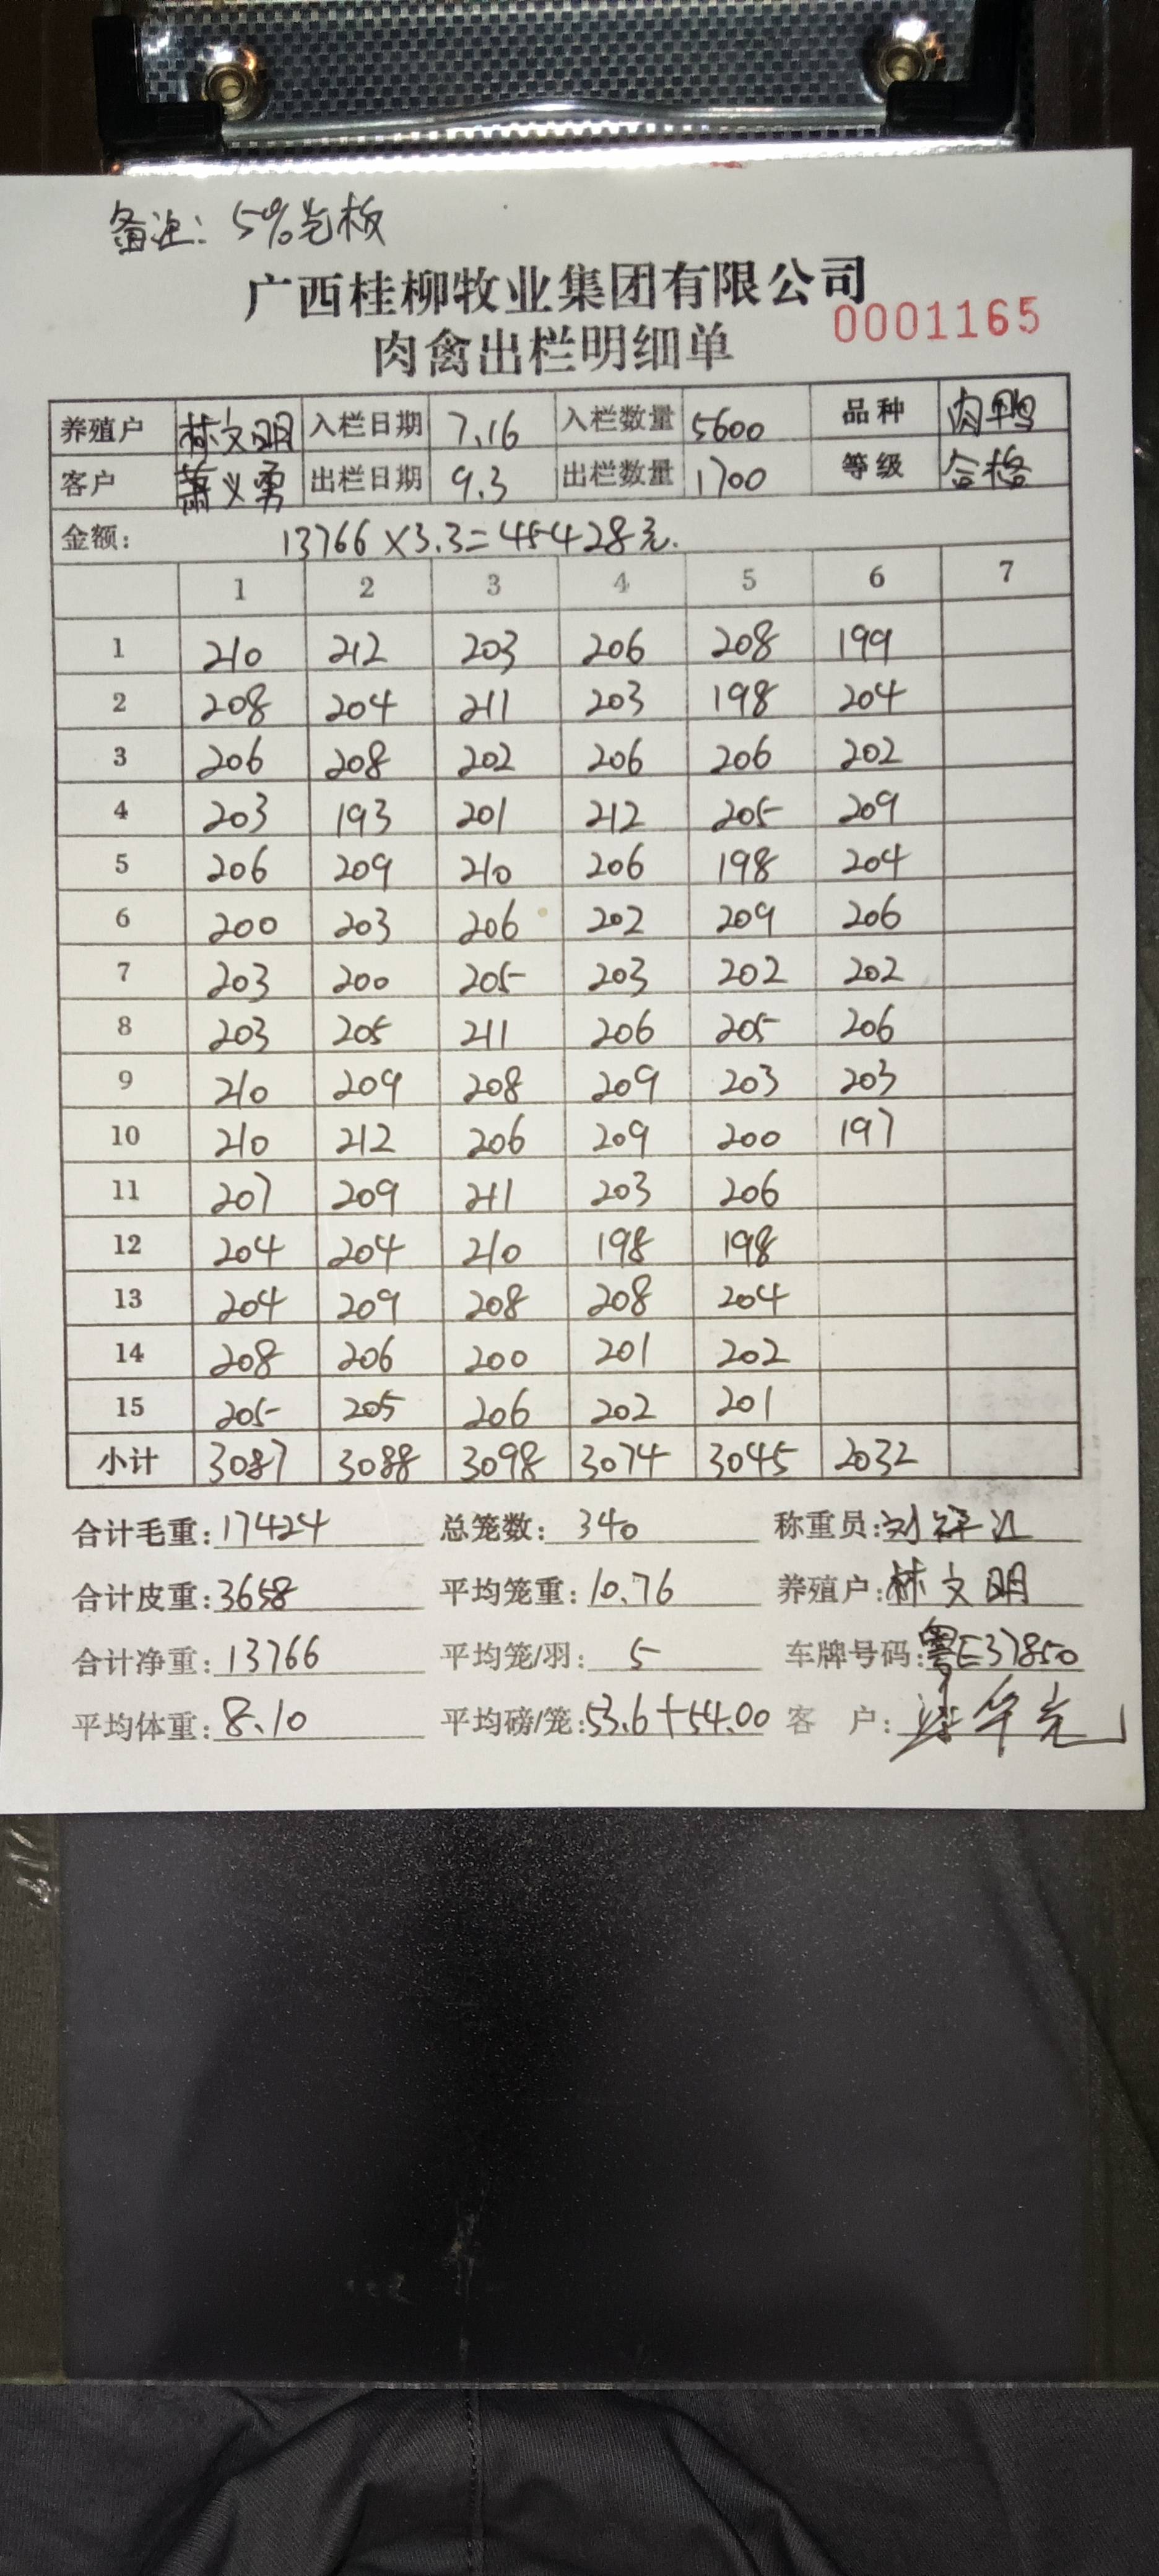 备注: 5%光板
广西桂柳牧业集团有限公司
肉禽出栏明细单 0001165
养殖户 林文明 入栏日期 7.16 入栏数量 5600 品种 肉鸭
客户 萧义勇 出栏日期 9.3 出栏数量 1700 等级 合格
金额: 13766×3.3=45428元.
1 2 3 4 5 6 7
1 210 212 203 206 208 199
2 208 204 211 203 198 204
3 206 208 202 206 206 202
4 203 193 201 212 205 209
5 206 209 210 206 198 204
6 200 203 206 202 209 206
7 203 200 205 203 202 202
8 203 205 211 206 205 206
9 210 209 208 209 203 203
10 210 212 206 209 200 197
11 207 209 211 203 206
12 204 204 210 198 198
13 204 209 208 208 204
14 208 206 200 201 202
15 205 205 206 202 201
小计 3087 3088 3098 3074 3045 2032
合计毛重: 17424 总笼数: 340 称重员: 刘
合计皮重: 3658 平均笼重: 10.76 养殖户: 林文明
合计净重: 13766 平均笼/羽: 5 车牌号码: 粤E37850
平均体重: 8.10 平均磅/笼: 53.6+54.00 客 户: 华光